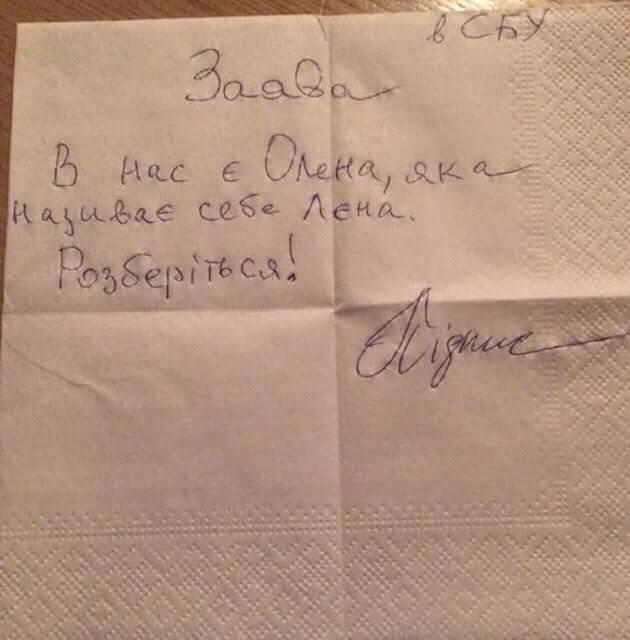 в СБУ
Заява
В нас є Олена, яка
називає себе Лєна.
Розберіться!
Підпис